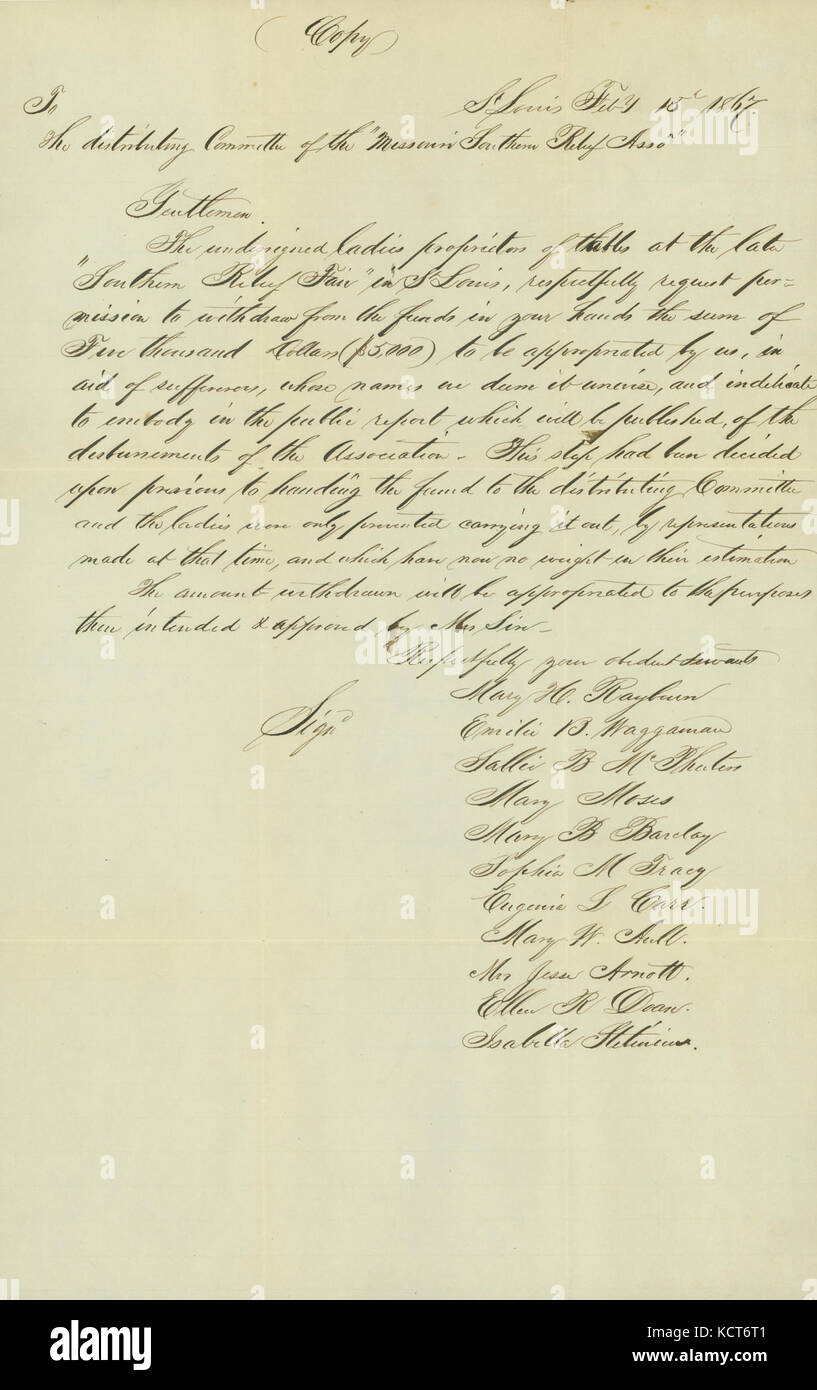 Copy
St Louis Feby 15th 1867.
To
The distributing Committee of the "Missouri Southern Relief Asso"
Gentlemen.
The undersigned ladies proprietors of tables at the late
"Southern Relief Fair" in St Louis, respectfully request per=
mission to withdraw from the funds in your hands the sum of
Five thousand Dollars ($5,000) to be appropriated by us, in
aid of sufferers, whose names we deem it unwise, and indelicate
to embody in the public report which will be published, of the
disbursements of the Association - This step had been decided
upon previous to handing the fund to the distributing Committee
and the ladies were only prevented carrying it out, by representations
made at that time, and which have now no weight in their estimation
The amount withdrawn will be appropriated to the purposes
then intended & approved by Mrs
Respectfully your obedient servants
Mary H. Rayburn
Signd
Emilie B. Waggaman
Sallie B McPheters
Mary Moses
Mary B Barclay
Sophia M Tracy
Eugenia L Carr.
Mary W. Hull.
Mrs Jesse Arnott.
Ellen R Doan.
Isabella
alamy
a
KCT6T1